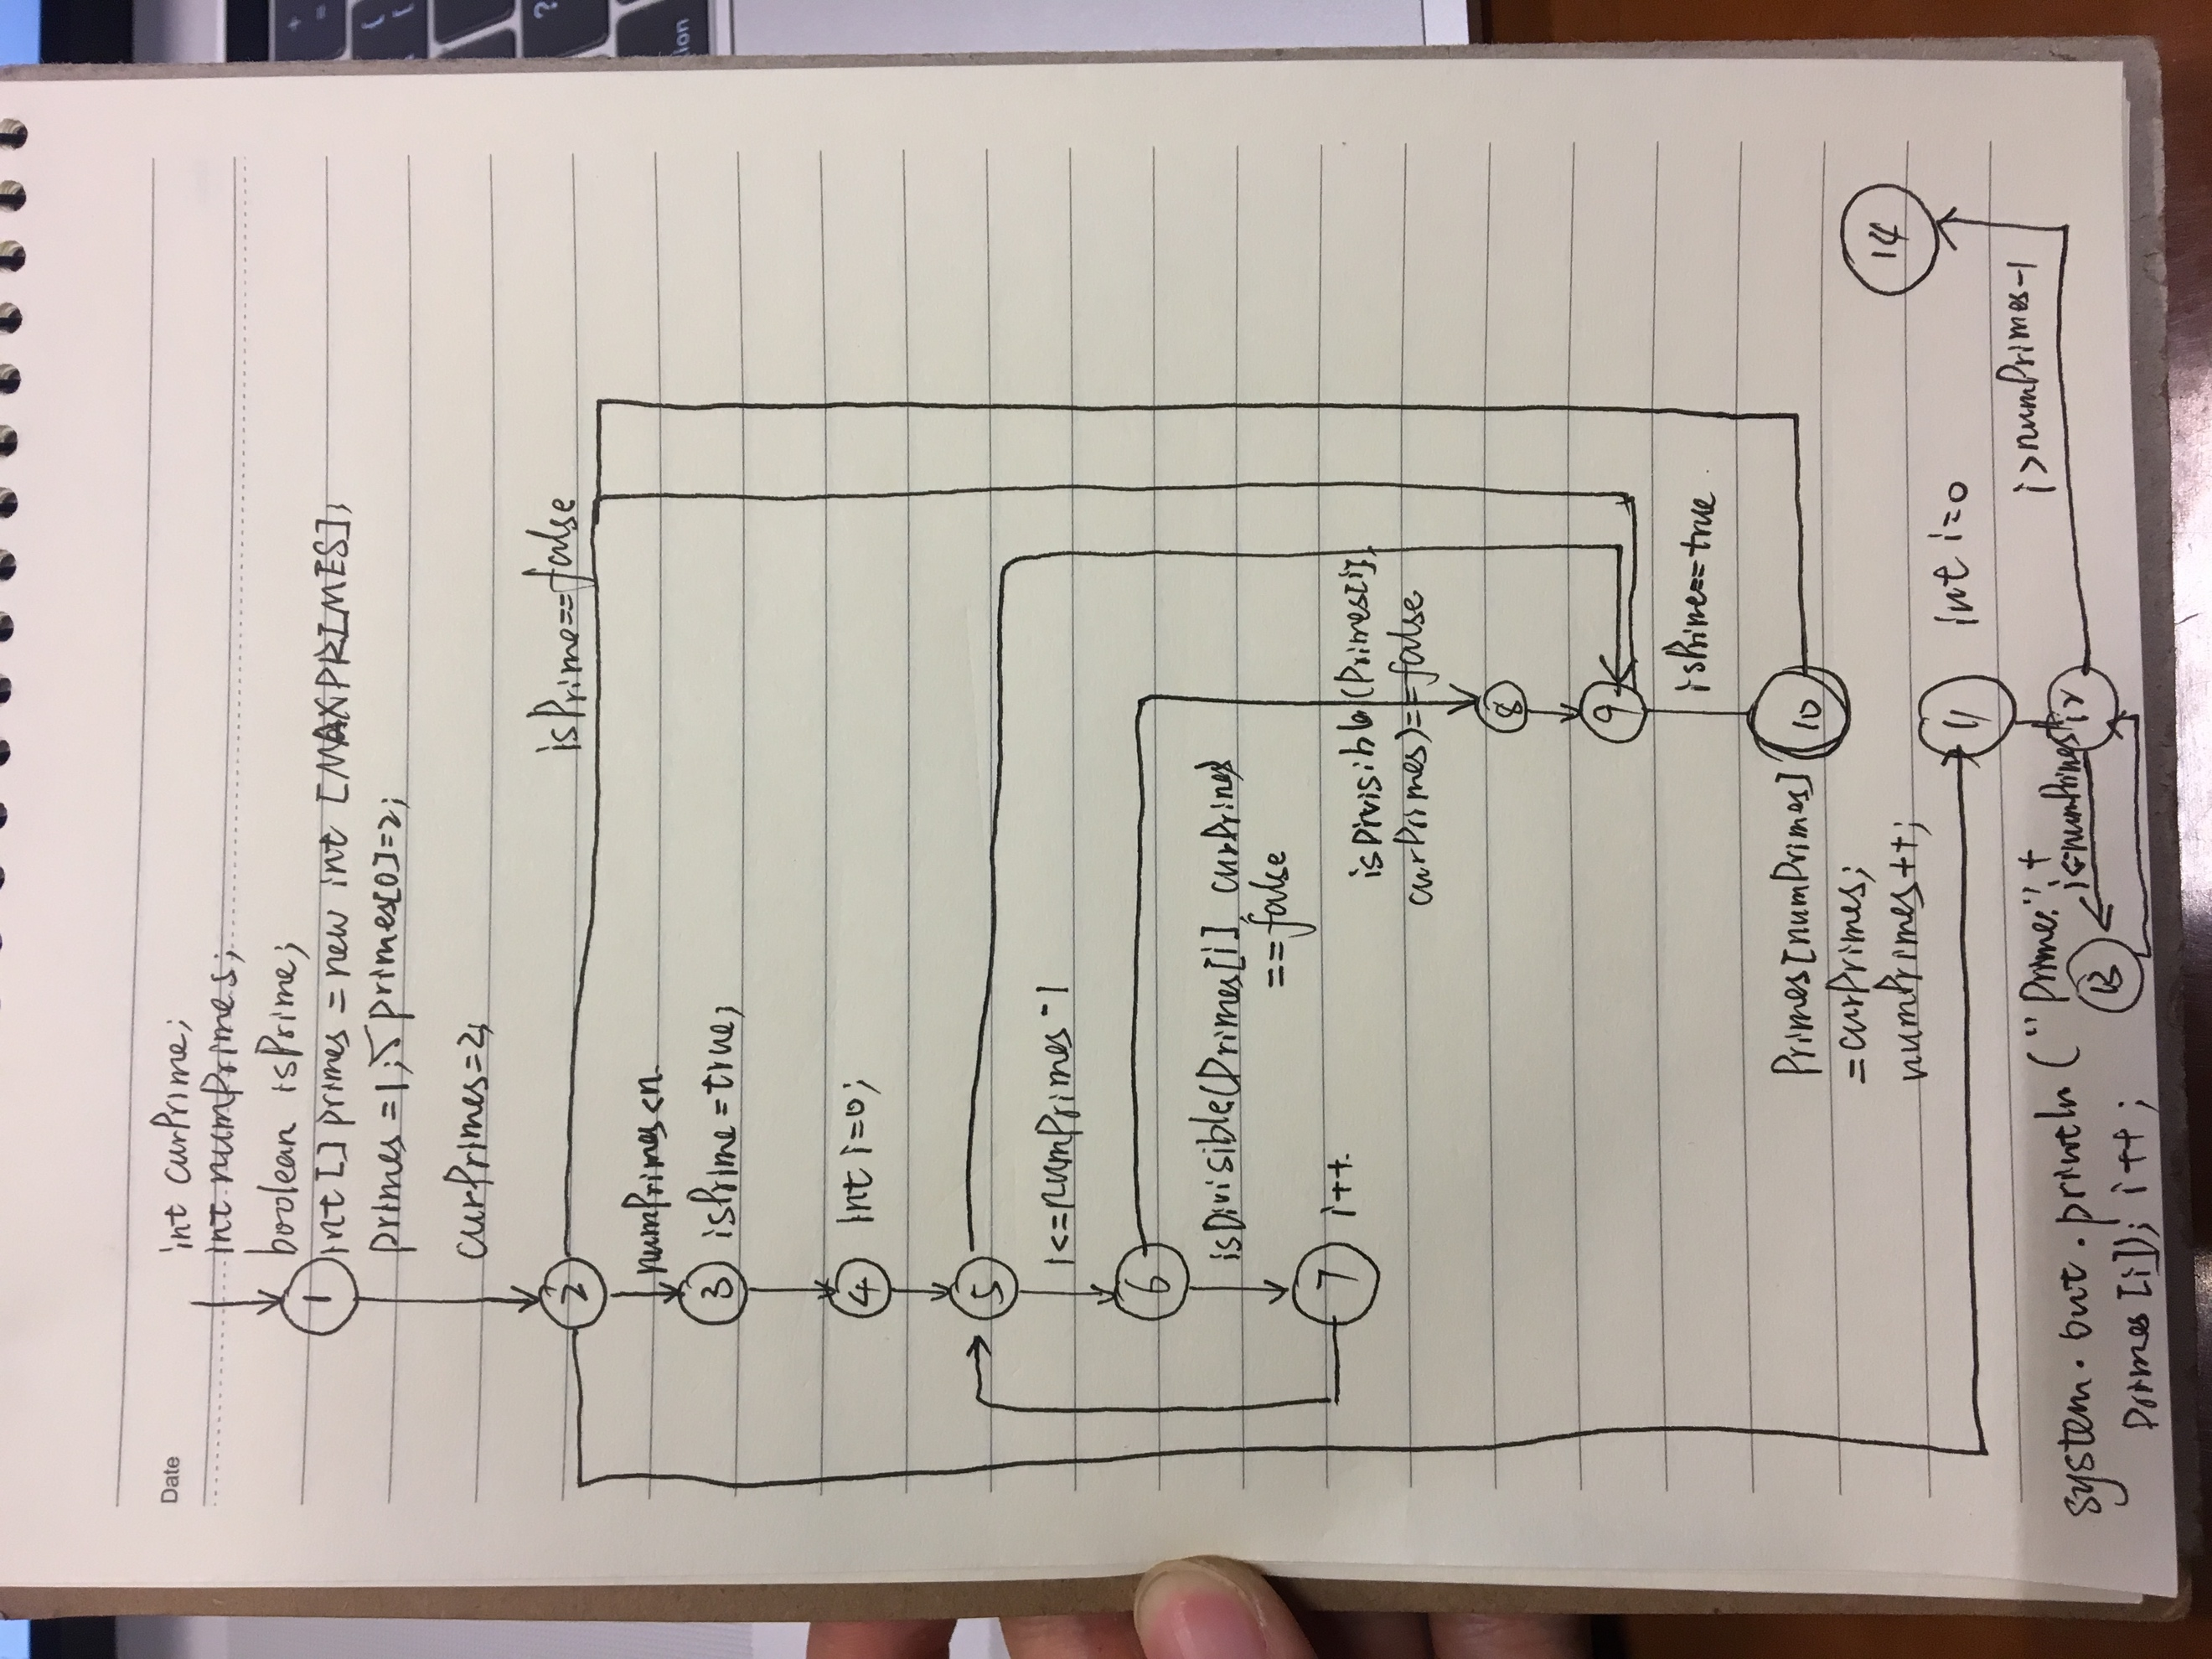 Date
int curPrime;
int numPrimes;
boolean isPrime;
1
int[] primes = new int [MAXPRIMES];
primes = 1; primes[0]=2;
curPrimes=2;
isPrime==false
2
numPrimes<n
3 isPrime=true;
4 int i=0;
5
i<=numPrimes-1
6
isDivisible(Primes[i] curPrimes
==false
7 i++
isDivisible(Primes[i],
curPrimes)==false
8
9
isPrime==true
10
Primes[numPrimes]
=curPrimes;
numPrimes++;
11 int i=0
12
i>numPrimes-1
14
13
system.out.println("Prime:"+
Primes[i]); i++;